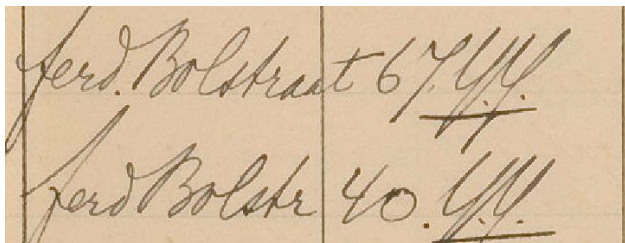 ferd. Bolstraat 67. Y.Y.
ferd Bolstr 40. Y.Y.